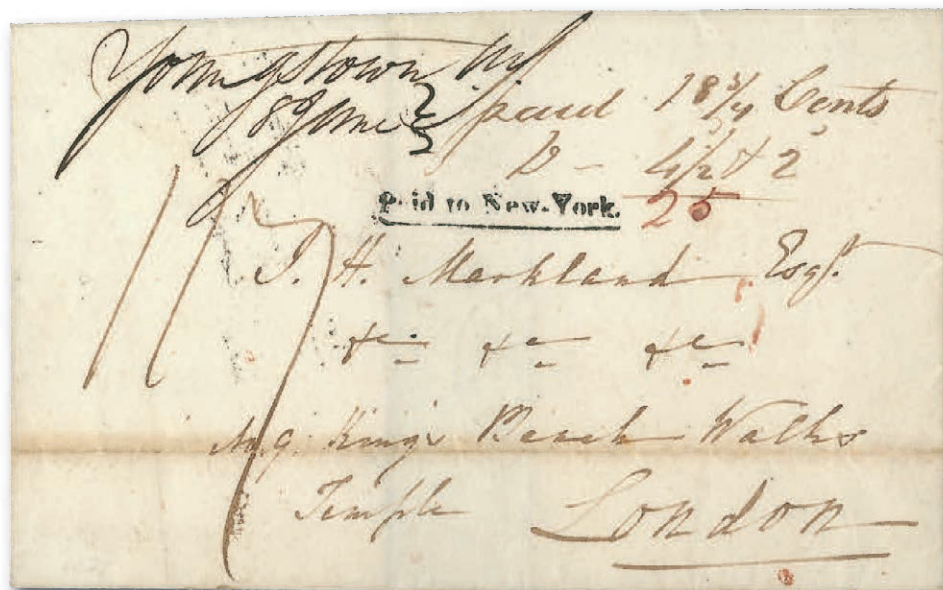 Youngstown NY
8 June paid 18 3/4 Cents
D - 4 1/2 & 2
Paid to New-York. 25
J. H. Markland Esqr.
&c &c &c
No. 9 King's Bench Walks
Temple London